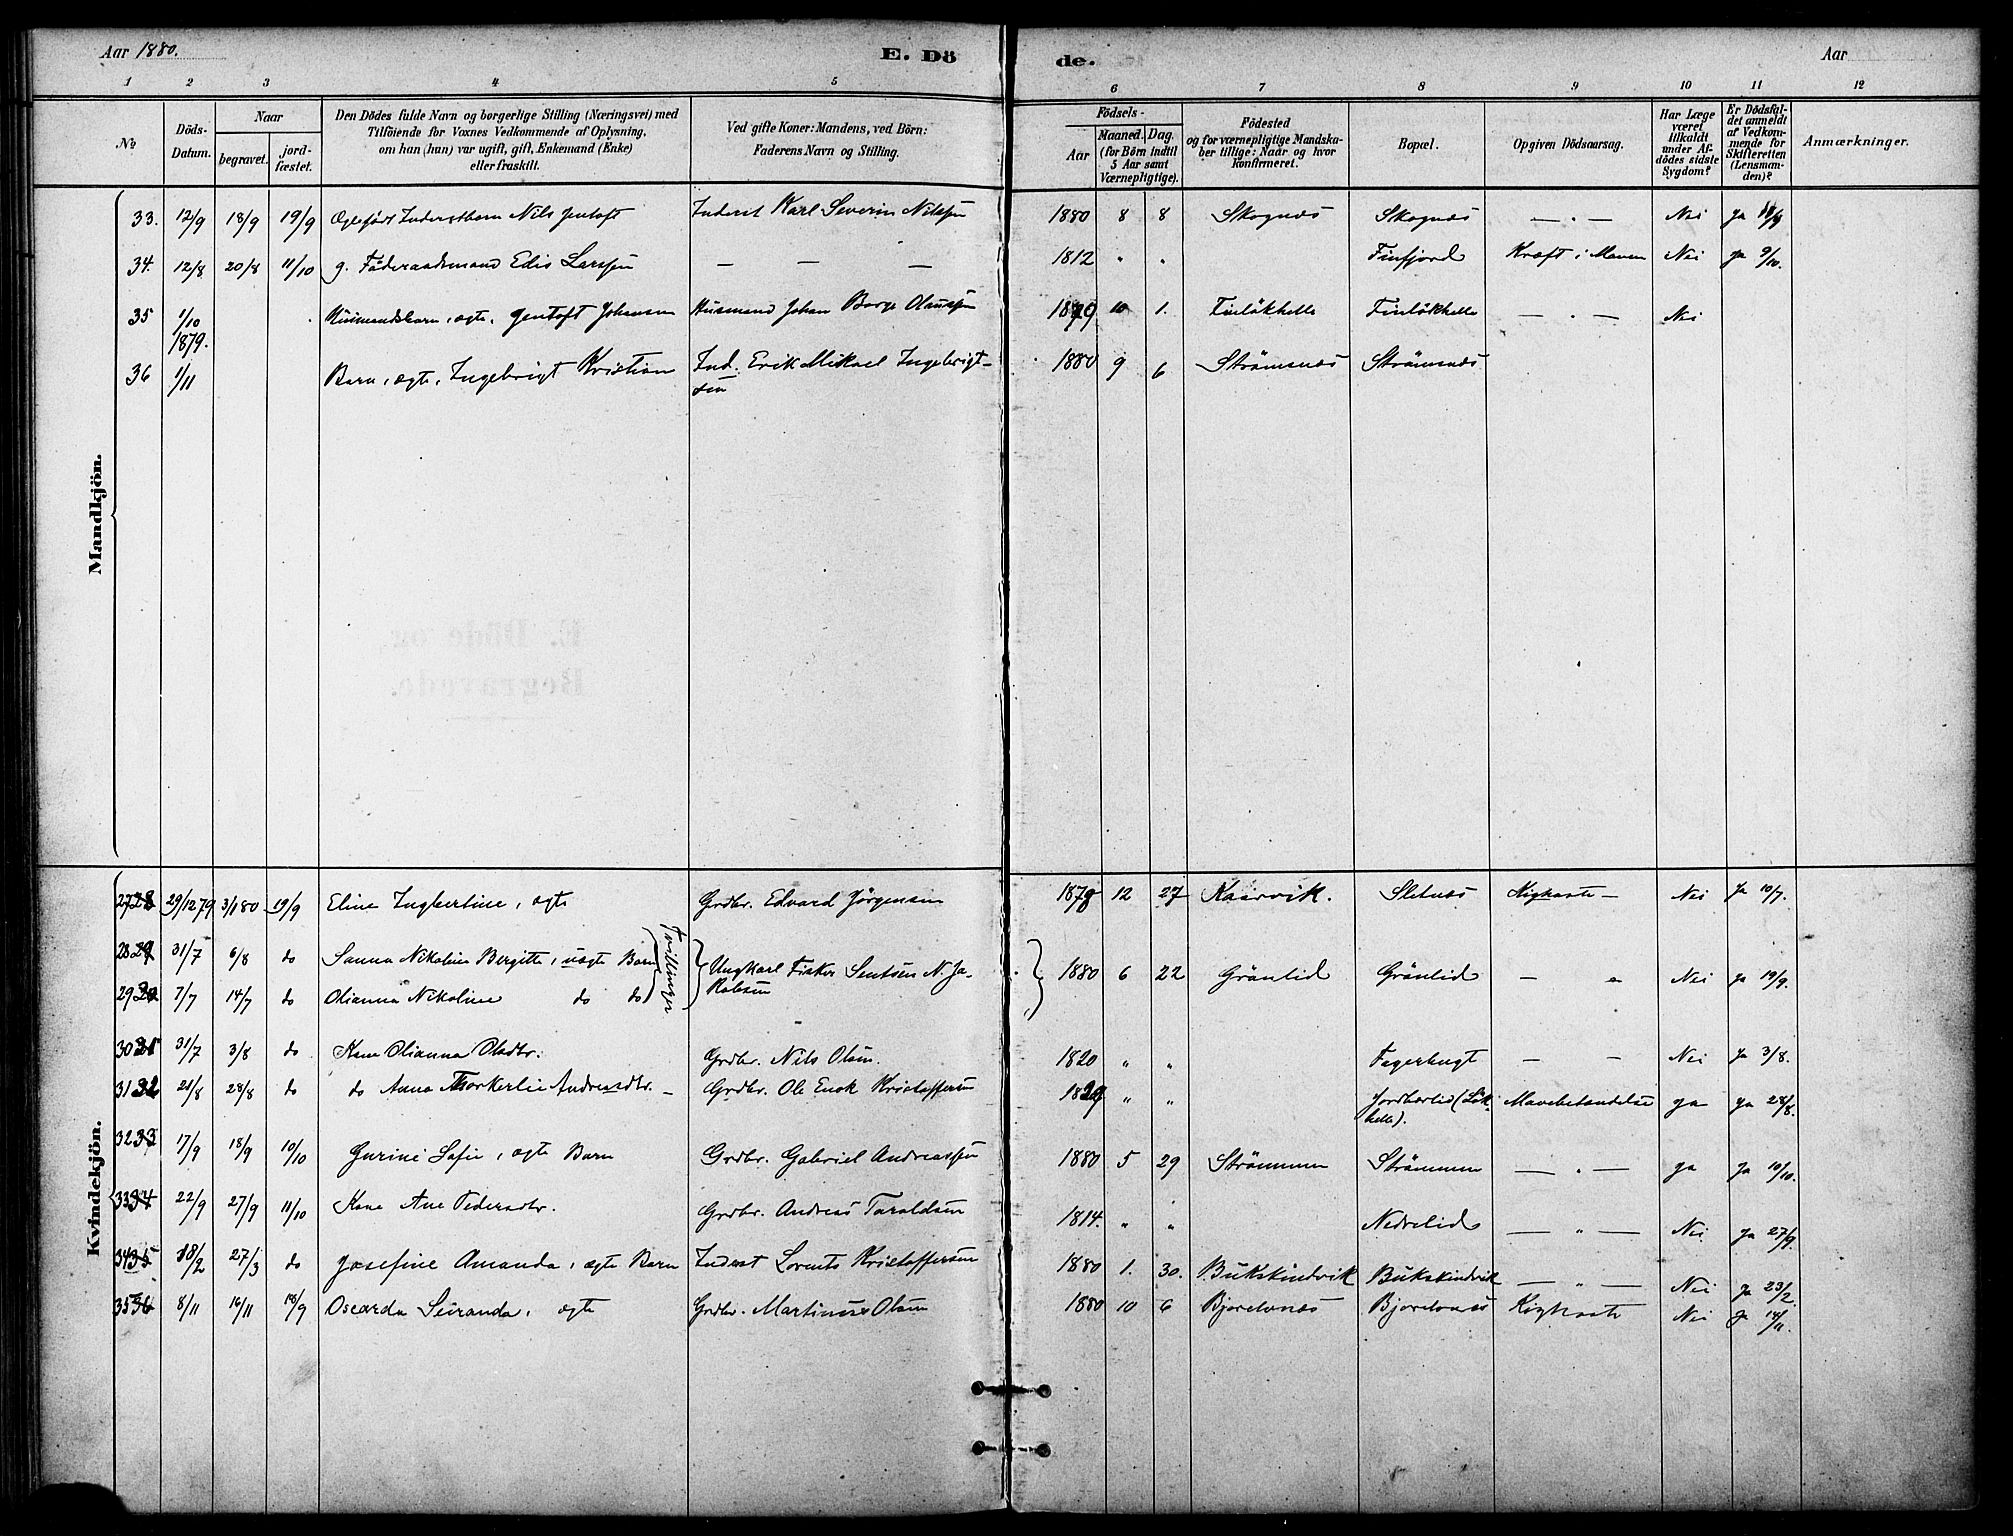 Aar 1880.
E. Dö
de.
Aar
1 2 3 4 5 6 7 8 9 10 11 12
No
Döds-Datum.
Naar
begravet.
jord-fæstet.
Den Dödes fulde Navn og borgerlige Stilling (Næringsvei) med
Tilföiende for Voxnes Vedkommende af Oplysning,
om han (hun) var ugift, gift, Enkemand (Enke)
eller fraskilt.
Ved gifte Koner: Mandens, ved Börn:
Faderens Navn og Stilling.
Födsels-
Aar
Maaned. Dag.
(for Börn indtil
5 Aar samt
Værnepligtige).
Födested
og for værnepligtige Mandska-
ber tillige: Naar og hvor
konfirmeret.
Bopæl.
Opgiven Dödsaarsag.
Har Læge
været
tilkaldt
under Af-
dödes sidste
Sygdom?
Er Dödsfal-
det anmeldt
af Vedkom-
mende for
Skifteretten
(Lensman-
den)?
Anmærkninger.
Mandkjön.
33. 12/9 18/9 19/9 Ægtefødt Inderstbarn Nils Jentoft Inderst Karl Severin Nilssen 1880 8 8 Skognæs Skognæs — " — Nei ja 18/9
34. 12/8 20/8 11/10 g. Föderaadsmand Edis Larssen — — — 1812 " " Finfjord Kræft i Maven Nei ja 9/10.
35 1/10 1879. Husmandsbarn, ægte, Jentoft Johansen Husmand Johan Borge Olaussen 1879 10 1. Finlökhelle Finlökhelle — " — Nei
36 1/11 Barn, ægte, Ingebrigt Kristian Ind. Erik Mikael Ingebrigt-
sen 1880 9 6 Strömsnæs Strömsnæs
Kvindekjön.
27 28 29/12 79 3/1 80 19/9 Eline Ingbertine, ægte Grdbr. Edvard Jörgensen 1879 12 27 Kaarvik. Sletnæs Kighoste — Nei Ja 10/7.
28 29 31/7 6/8 do Sanna Nikoline Bergitte, uægte Barn Tvillinger Ungkarl Fisker Sentsen N. Ja-
kobsen 1880 6 22 Grönlid Grönlid — " Nei ja 19/9.
29 30 7/7 14/7 do Olianna Nikoline do do
30 31 31/7 3/8 do Kone Olianna Olsdtr. Grdbr. Nils Olsen. 1820 " " Fagerbugt — — Nei Ja 3/8.
31 32 21/8 28/8 do do Anna Thorkerlie Andreasdtr. — Grdbr. Ole Enok Kristoffersen 1829 " " Jordbærlid (Lök-
helle). Mavebetændelse ja ja 28/8.
32 33 17/9 18/9 10/10 Gurine Sofie, ægte Barn Grdbr. Gabriel Andreassen 1880 5 29 Strömmen Strömmen — " — ja Ja 10/10.
33 34 22/9 27/9 11/10 Kone Ane Pedersdtr. Grdbr. Andreas Taraldsen 1814. " " Nedrelid — " — Nei Ja 27/9.
34 35 18/2 27/3 do Josefine Amanda, ægte Barn Inderst Lorents Kristoffersen 1880 1. 30. Bukskindvik Bukskindvik — " — Nei Ja 23/2.
35 36 8/11 16/11 18/9 Oscarda Seüranda, ægte Grdbr. Martinus Olsen 1880 10 6 Bjorelvnæs Bjorelvnæs Kighoste Nei Ja 14/11.